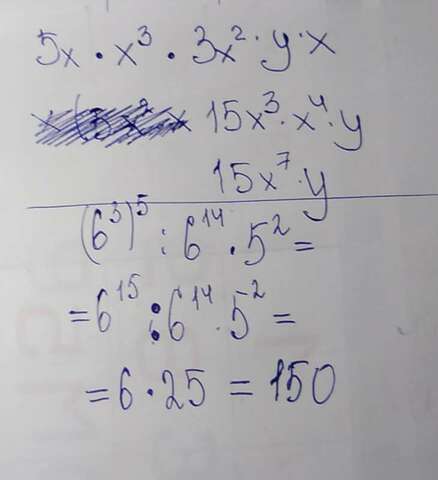 5x · x³ · 3x² · y · x
15x³ · x⁴ · y
15x⁷ · y
(6³)⁵ : 6¹⁴ · 5² =
= 6¹⁵ : 6¹⁴ · 5² =
= 6 · 25 = 150